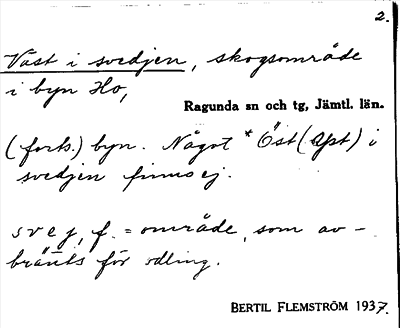 2.
Väst i svedjen, skogsområde
i byn Ho,
Ragunda sn och tg, Jämtl. län.
(forts.) byn. Något * Öst (Apt) i
svedjen finns ej.
svej, f. = område, som av-
bränts för odling.
BERTIL FLEMSTRÖM 1937.